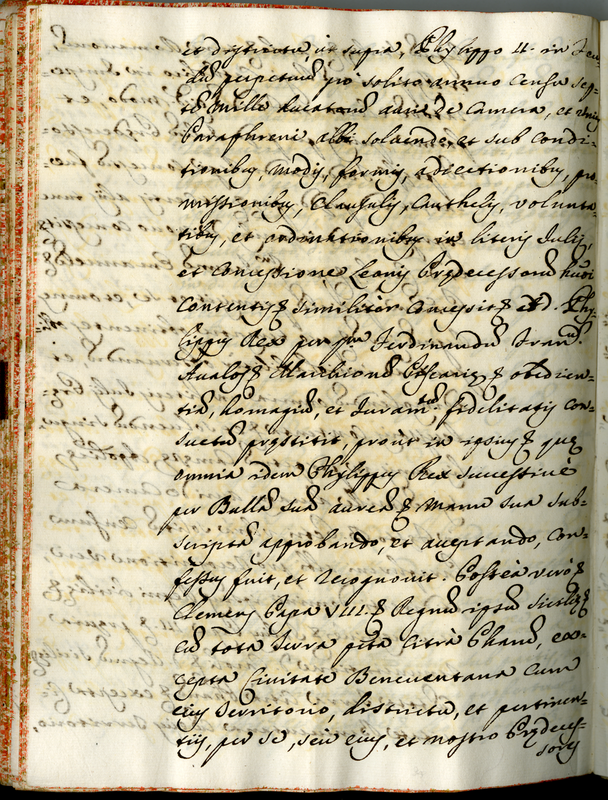 et districtu, ut supra, Phylippo 4. in feu-
dũ perpetuũ pro solito annuo censu sep-
tẽ mille ducatorũ auri de Camera, et
Paraphreni albi solvendo, et sub Condi-
tionibus, modis, formis, adiectionibus, pro
missionibus, Clausulis, Cauthelis, volunta-
tibus, et ordinationibus in literis Julij,
et Concessione Leonis Prædecessorũ
Contentis & similiter Concessit & Phy-
lippus Rex per Ferdinandũ Fran.
Avalos & Marchionẽ Piscariæ & obedien-
tiã, homagiũ, et Juramtũ fidelitatis con-
suetũ præstitit, prout in ipsius & quæ
omnia idem Phylippus Rex successivè
per Bullã suã aureã & manu sua sub-
scriptã approbando, et aceptando, con-
fessus fuit, et recognovit. Posteà verò &
Clemens Papa VIII. & Regnũ ipsũ Siciliæ &
cũ tota Terra pta Citrà Pharũ, ex-
cepta Civitate Beneventana cum
eius Territorio, districtu, et pertinen-
tijs, per se, seu eius, et nostro Prædeces-
sores